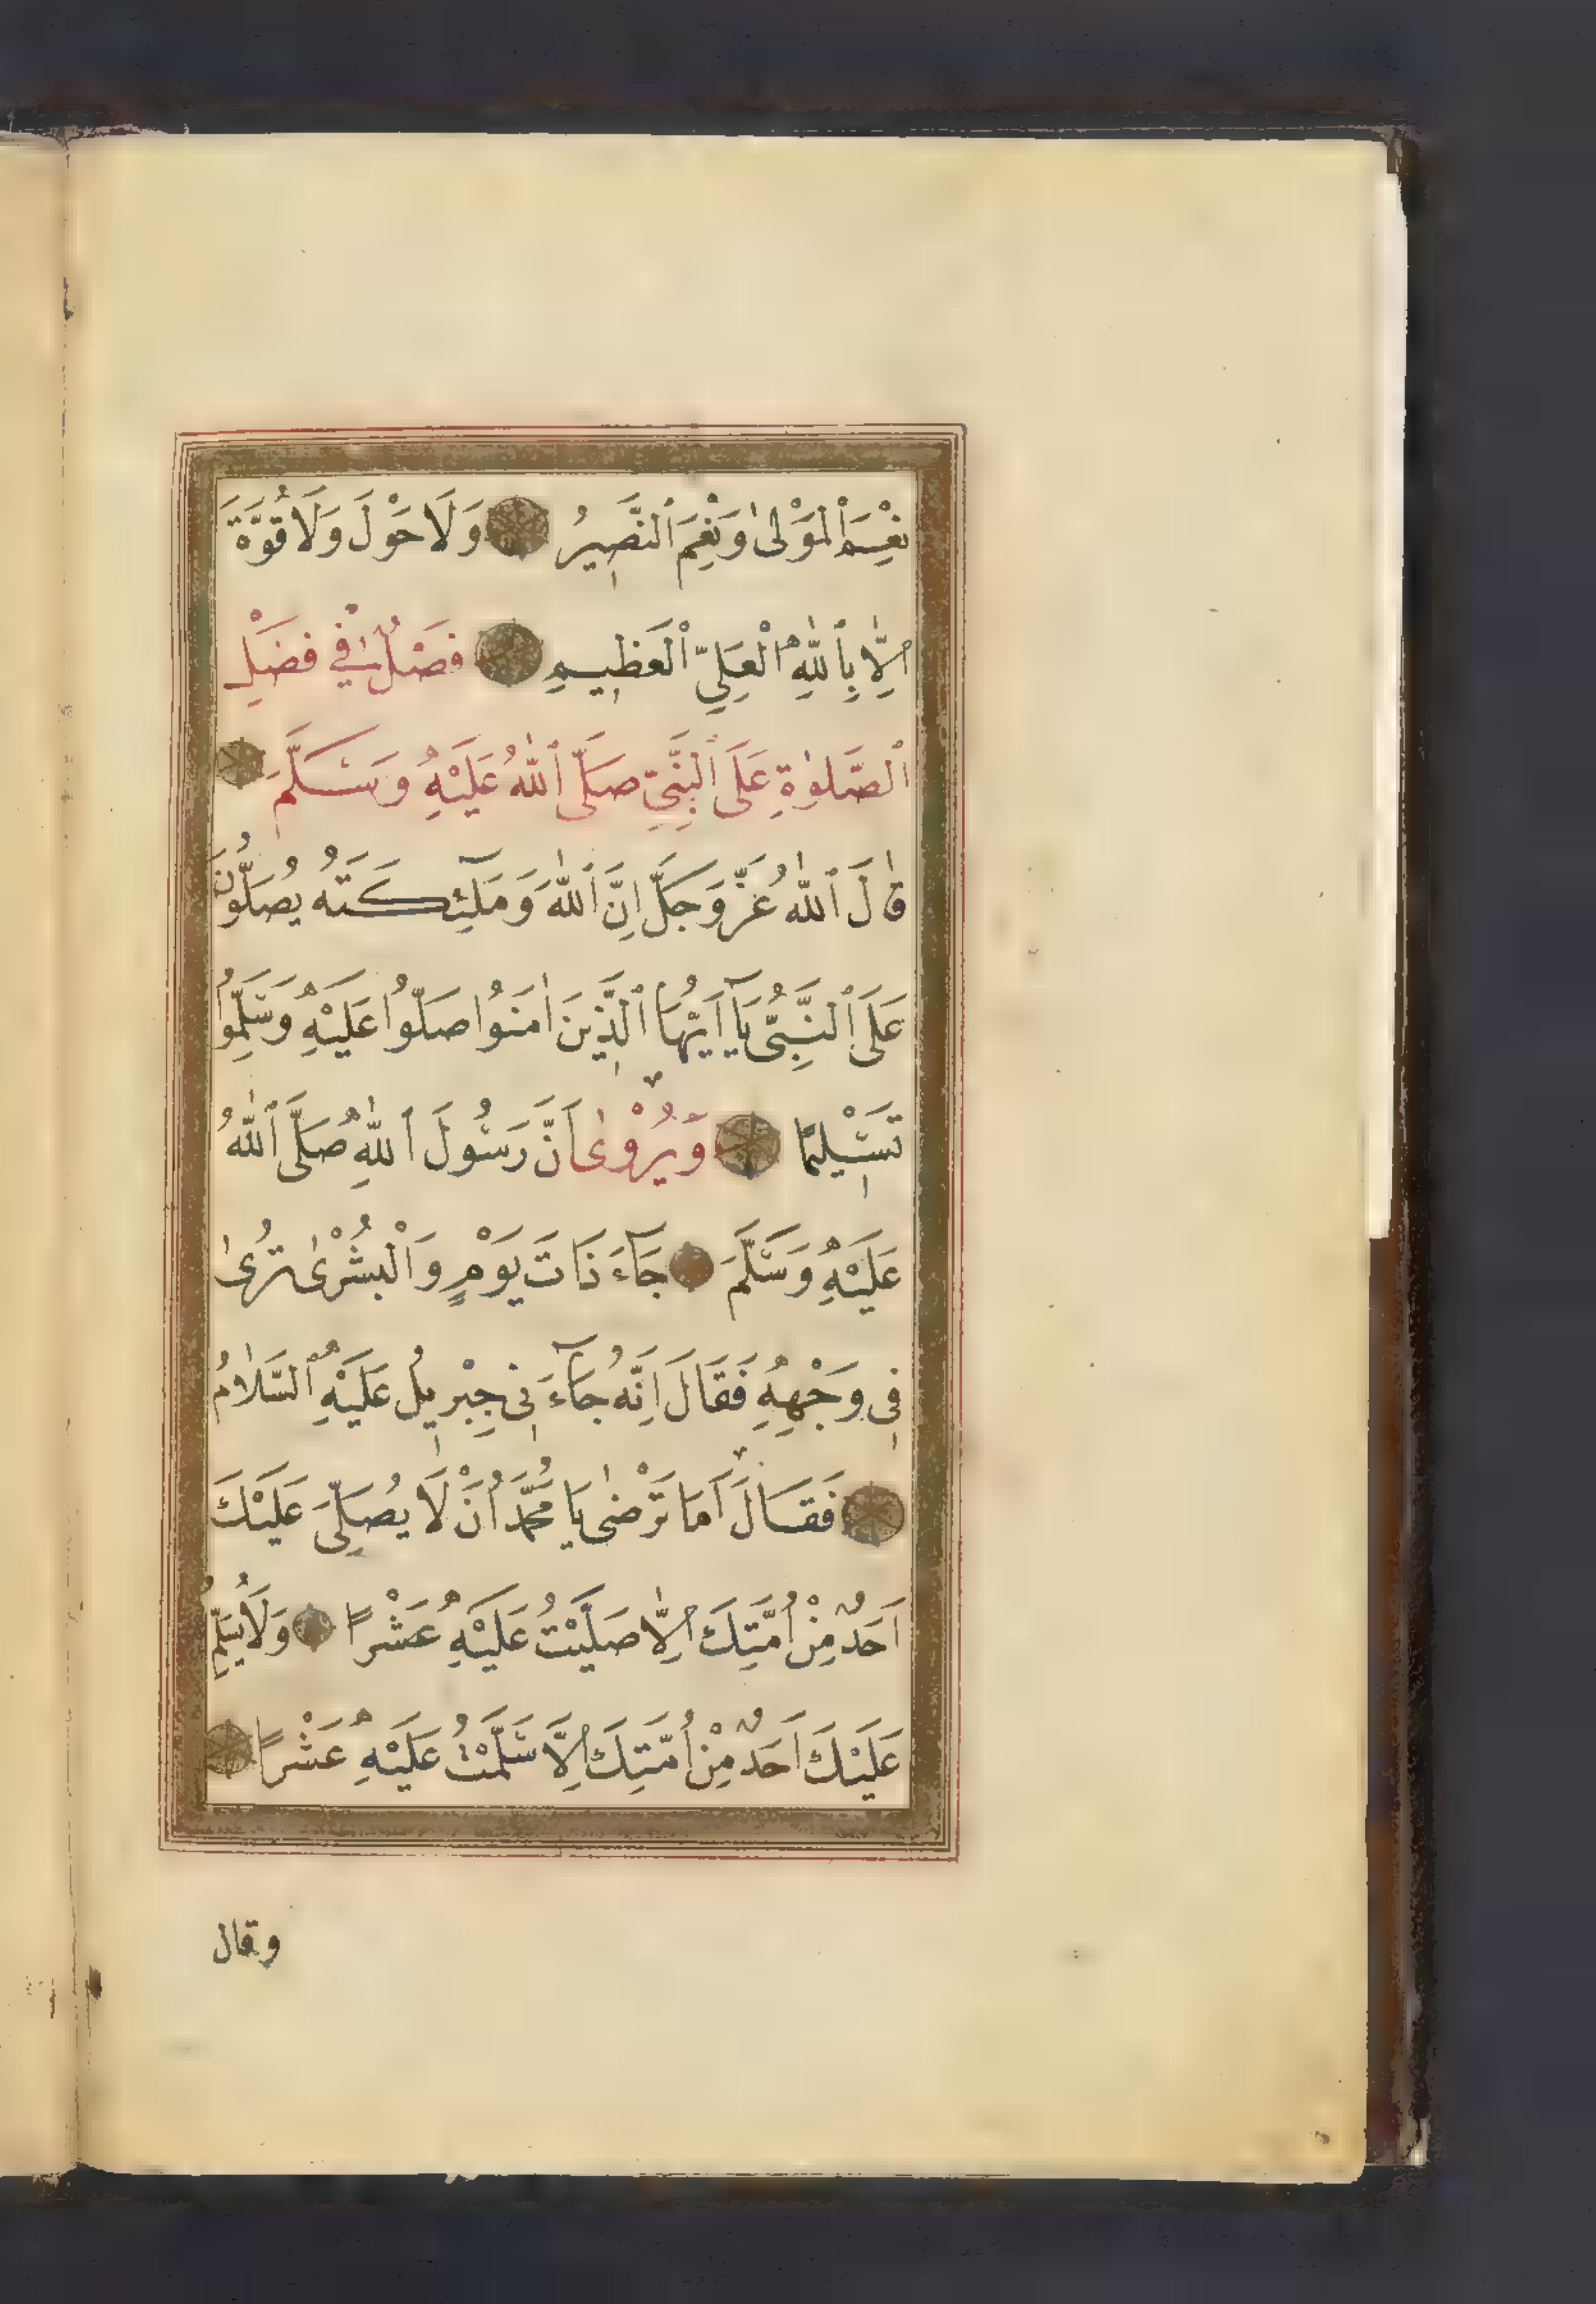 نِعْمَ ٱلْمَوْلٰى وَنِعْمَ ٱلنَّصِيرُ وَلَا حَوْلَ وَلَا قُوَّةَ
اِلَّا بِٱللّٰهِ ٱلْعَلِيِّ ٱلْعَظِيمِ فَصْلٌ فِي فَضْلِ
ٱلصَّلٰوةِ عَلَى ٱلنَّبِيِّ صَلَّى ٱللّٰهُ عَلَيْهِ وَسَلَّمَ
قَالَ ٱللّٰهُ عَزَّ وَجَلَّ اِنَّ ٱللّٰهَ وَمَلٰٓئِكَتَهُ يُصَلُّونَ
عَلَى ٱلنَّبِيِّ يَآ اَيُّهَا ٱلَّذِينَ اٰمَنُوا صَلُّوا عَلَيْهِ وَسَلِّمُوا
تَسْلِيمًا وَيُرْوٰى اَنَّ رَسُولَ ٱللّٰهِ صَلَّى ٱللّٰهُ
عَلَيْهِ وَسَلَّمَ جَآءَ ذَاتَ يَوْمٍ وَالْبُشْرٰى تُرٰى
فِي وَجْهِهِ فَقَالَ اِنَّهُ جَآءَنِي جِبْرِيلُ عَلَيْهِ ٱلسَّلَامُ
فَقَالَ اَمَا تَرْضٰى يَا مُحَمَّدُ اَنْ لَا يُصَلِّيَ عَلَيْكَ
اَحَدٌ مِنْ اُمَّتِكَ اِلَّا صَلَّيْتُ عَلَيْهِ عَشْرًا وَلَا يُسَلِّمُ
عَلَيْكَ اَحَدٌ مِنْ اُمَّتِكَ اِلَّا سَلَّمْتُ عَلَيْهِ عَشْرًا
وقال